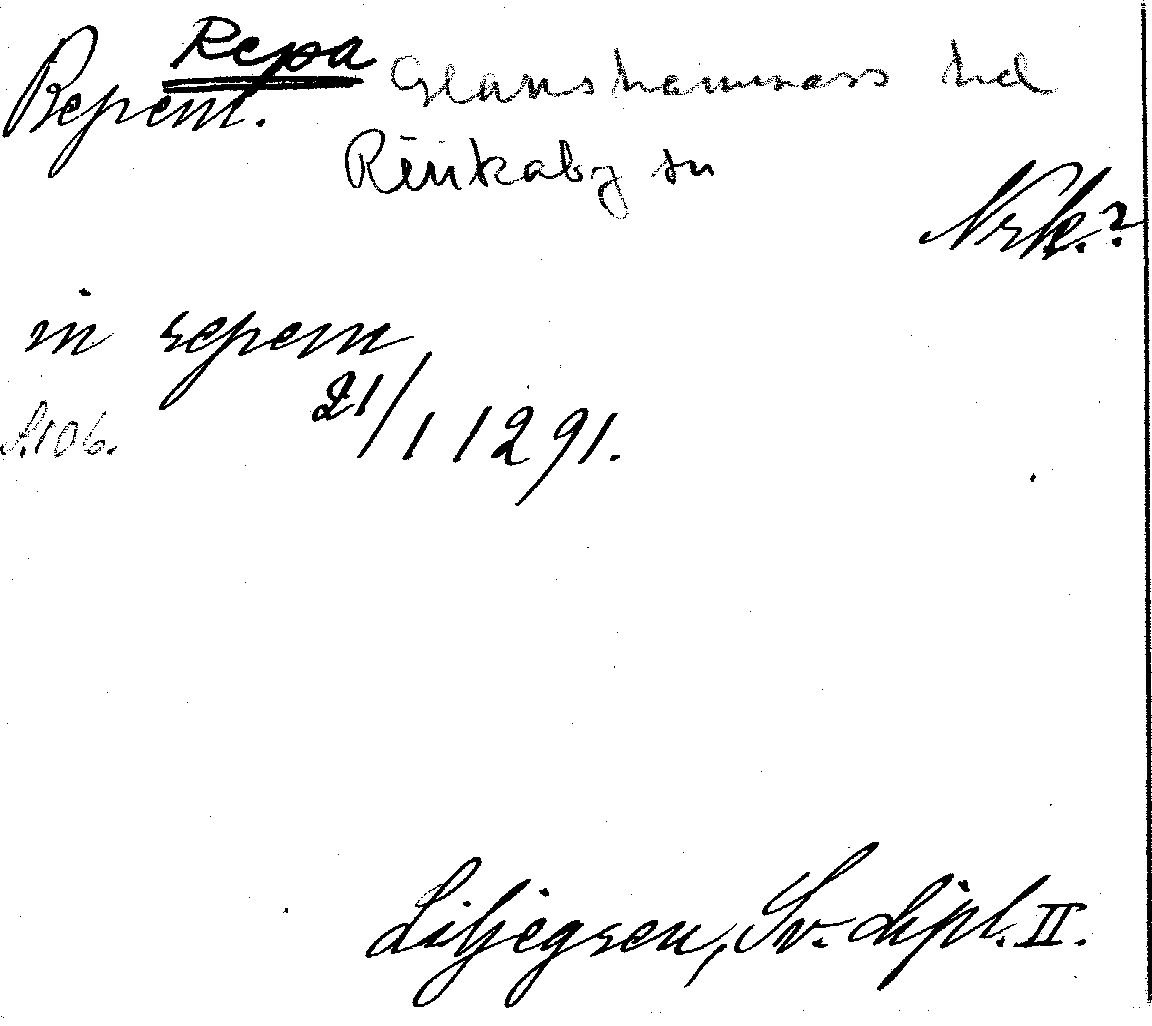 Repa
Repem. Glanshammars hd
Rinkaby sn
Nrk.?
in repem
S. 106. 21/1 1291.
Liljegren, Sv. dipl. II.